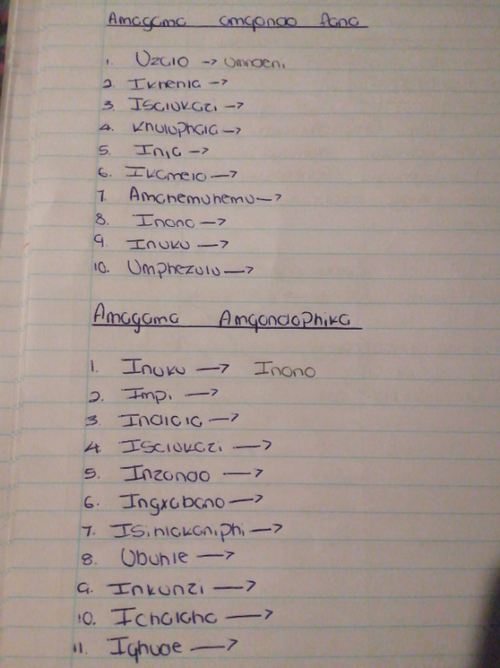 Amagama amqondo fana
1. Uzalo → Umndeni
2. Ikhehla →
3. Isalukazi →
4. Khuluphala →
5. Inja →
6. Ikamelo →
7. Amahemuhemu →
8. Inono →
9. Inuku →
10. Umphezulu →
Amagama Amqondophika
1. Inuku → Inono
2. Impi →
3. Indlala →
4. Isalukazi →
5. Inzondo →
6. Ingxabano →
7. Isihlakaniphi →
8. Ubuhle →
9. Inkunzi →
10. Ichalaha →
11. Iqhude →